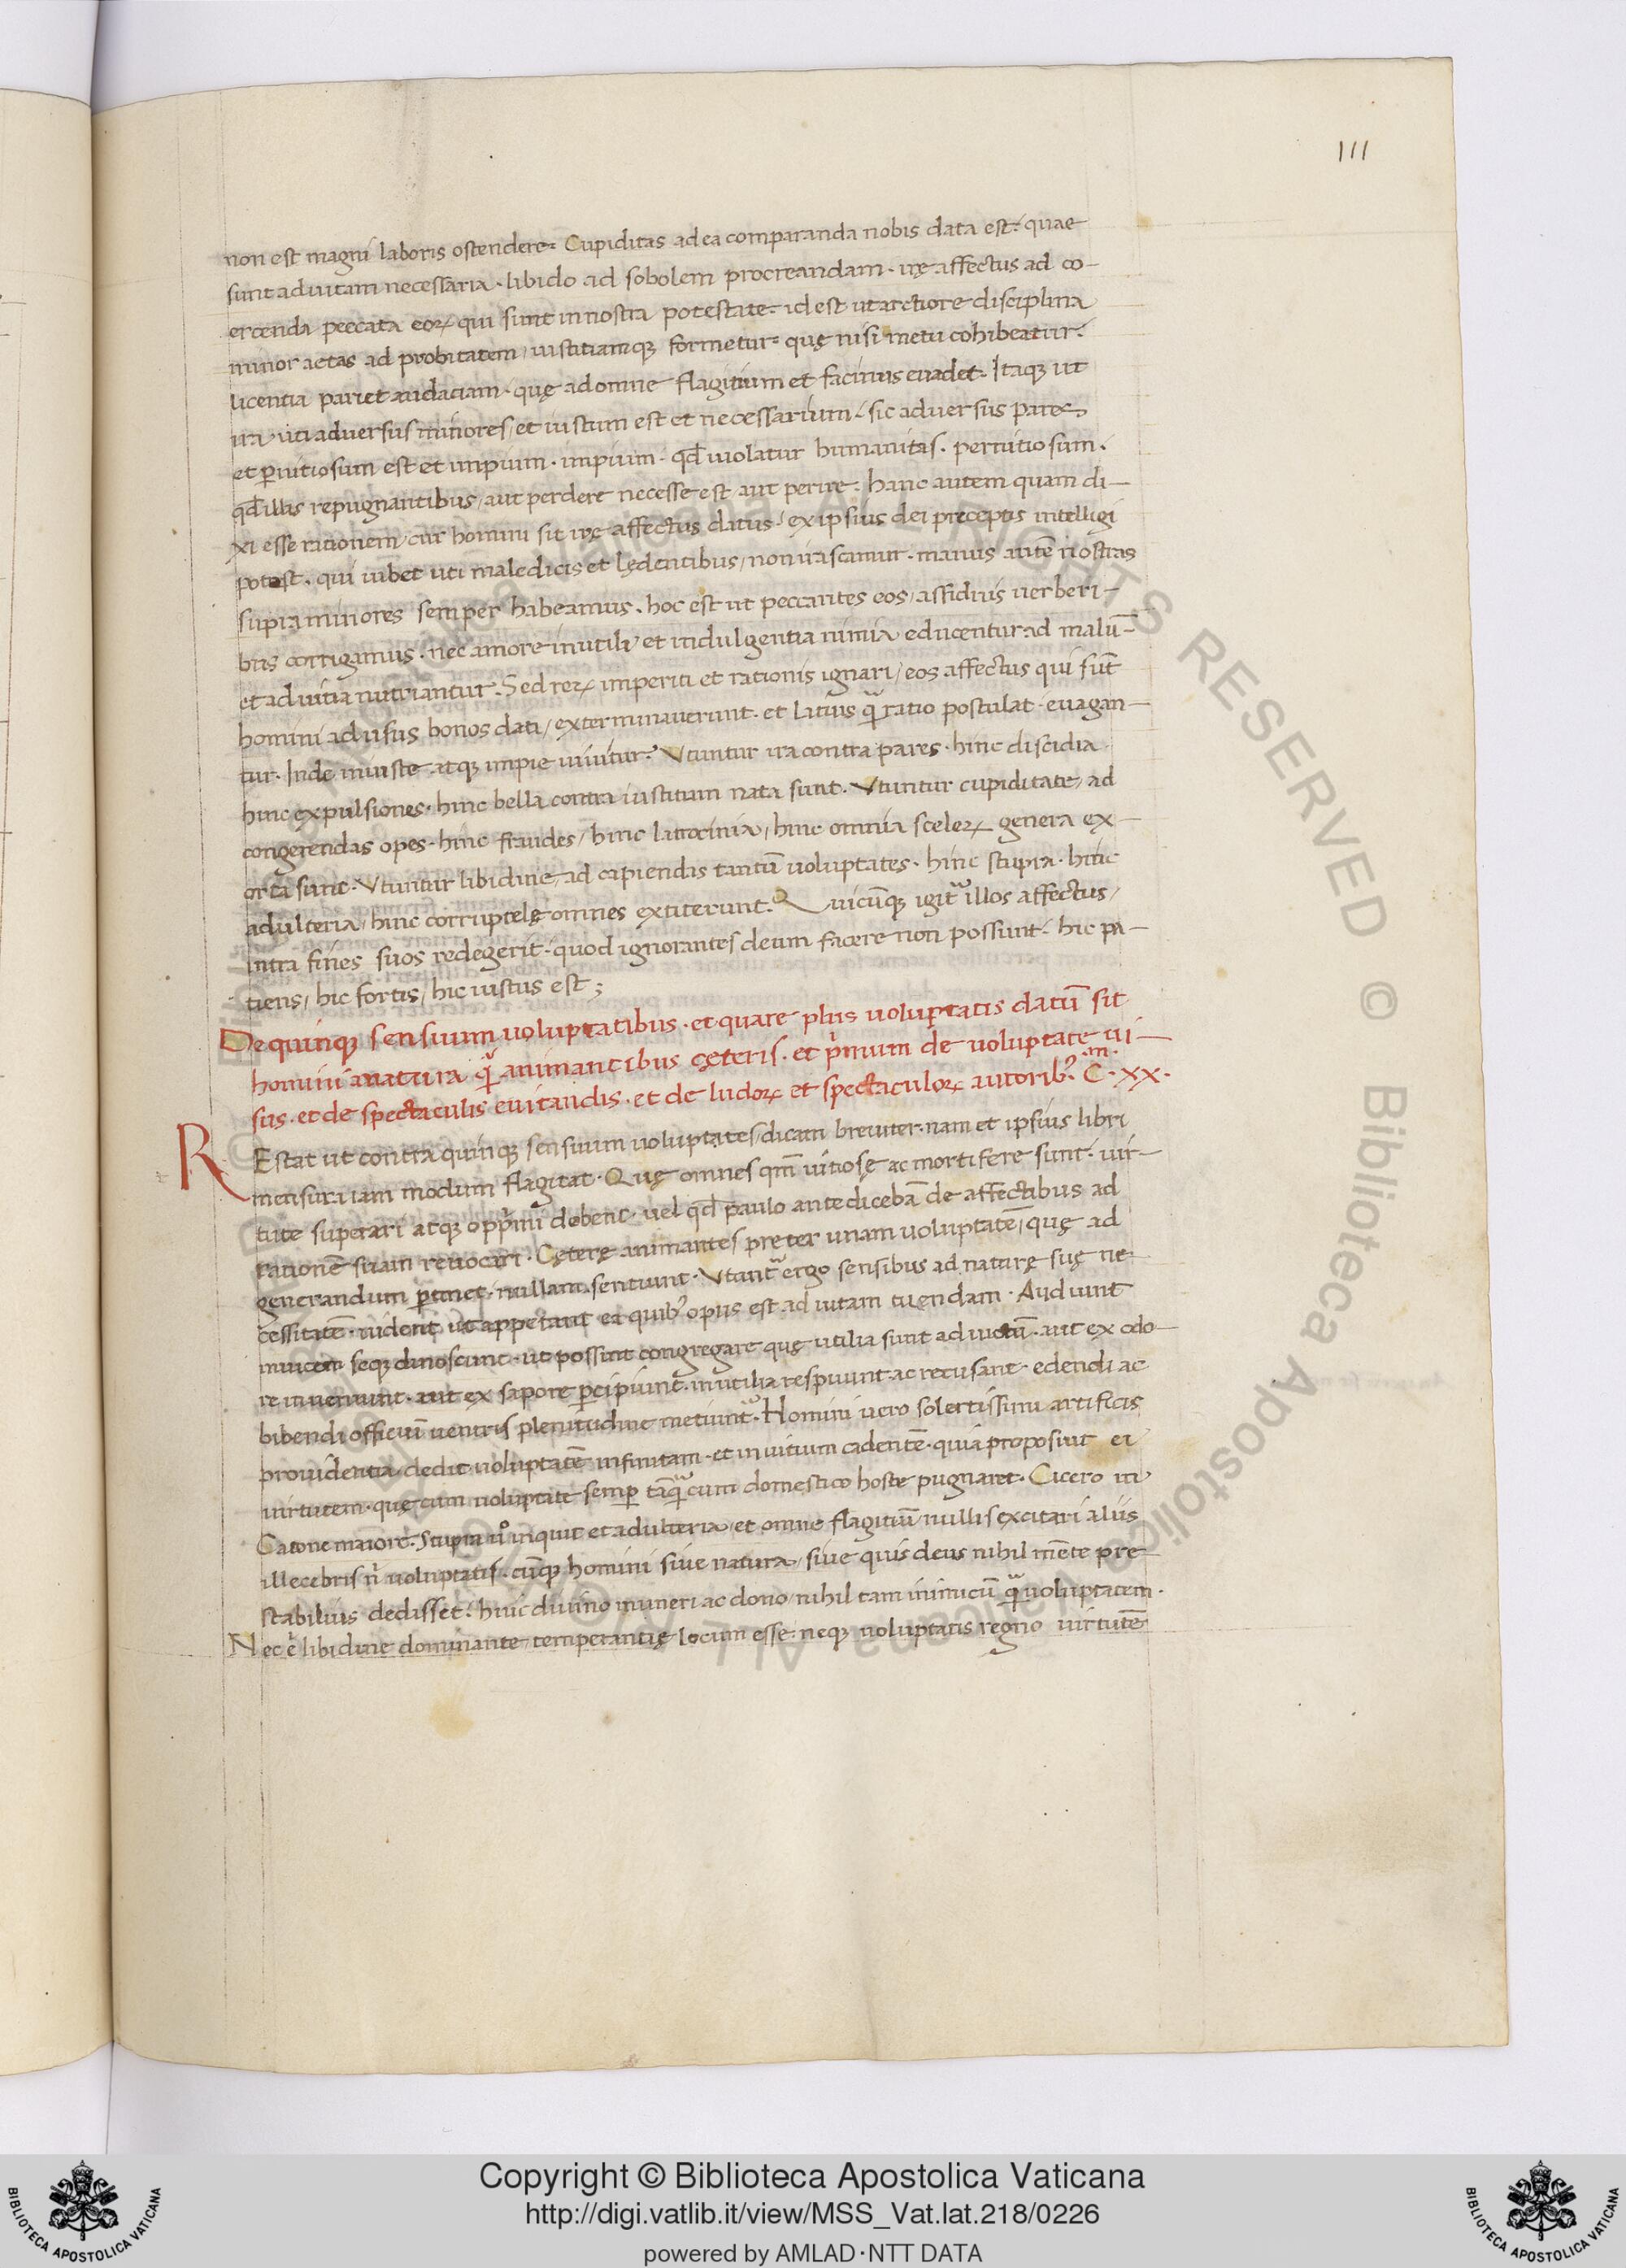 111
non est magni laboris ostendere. Cupiditas ad ea comparanda nobis data est. quae
sunt ad uitam necessaria. libido ad sobolem procreandam. irę affectus ad co-
ercenda peccata eoꝝ qui sunt in nostra potestate. id est ut arctiore disciplina
minor aetas ad probitatem iustitiamqꝫ formetur. quę nisi metu cohibeatur.
licentia pariet audaciam. quę ad omne flagitium et facinus euadet. Itaqꝫ ut
ira uti aduersus minores et iustum est et necessarium. sic aduersus pares
et p̲nitiosum est et impium. impium. qđ uiolatur humanitas. pernitiosum.
qđ illis repugnantibus aut perdere necesse est aut perire. hanc autem quam di-
xi esse rationem cur homini sit irę affectus datus ex ipsius dei preceptis intelligi
potest. qui iubet uti maledicis et lędentibus non irascamur. manus autē nostras
supra minores semper habeamus. hoc est ut peccantes eos assiduis uerberi-
bus corrigamus. nec amore inutili et indulgentia nimia educentur ad malū-
et ad uitia nutriantur. Sed reꝝ imperiti et rationis ignari eos affectus qui sūt
homini ad usus bonos dati exterminauerunt. et latius q̃ ratio postulat. euagan-
tur. Inde iniuste atqꝫ impie uiuitur. Vtuntur ira contra pares. hinc discidia
hinc expulsiones. hinc bella contra iustitiam nata sunt. Vtuntur cupiditate ad
congerendas opes. hinc fraudes hinc latrocinia hinc omnia sceleꝝ genera ex-
orta sunt. Vtuntur libidine ad capiendas tantū uoluptates. hinc stupra. hinc
adulteria hinc corruptelę omnes extiterunt. Quicūqꝫ igit᷑ illos affectus
intra fines suos redegerit. quod ignorantes deum facere non possunt. hic pa-
tiens hic fortis hic iustus est;
De quinqꝫ sensuum uoluptatibus. et quare plus uoluptatis datū sit
homini a natura q̃ animantibus cęteris. et p̍mum de uoluptate ui-
sus. et de spectaculis euitandis. et de ludoꝝ et spectaculoꝝ autoribꝰ. Cam. XX.
REstat ut contra quinqꝫ sensuum uoluptates dicam breuiter. nam et ipsius libri
mensura iam modum flagitat. Quę omnes qm̄ uitiosę ac mortifere sunt. uir-
tute superari atqꝫ opp̍mi debent. uel qđ paulo ante dicebā de affectibus ad
rationē suam reuocari. Cęterę animantes preter unam uoluptatē quę ad
generandum p̲tinet. nullam sentiunt. Vtunt᷑ ergo sensibus ad naturę suę ne-
cessitatē. uident ut appetant ea quibꝰ opus est ad uitam tuendam. Audiunt
inuicem seqꝫ dinoscunt. ut possint congregare quę utilia sunt ad uictū. aut ex odo-
re inueniunt. aut ex sapore p̲cipiunt. inutilia respuunt ac recusant. edendi ac
bibendi officiū uentris plenitudine metiunt᷑. Homini uero solertissimi artificis
prouidentia dedit uoluptatē infinitam. et in uitium cadentē. quia proposuit ei
uirtutem. quę cum uoluptate semp̲ tāq̃ cum domestico hoste pugnaret. Cicero in
Catone maiore. Stupra uo inquit et adulteria et omne flagitiū nullis excitari aliis
illecebris n̍ uoluptatis. cūqꝫ homini siue natura siue quis deus nihil mēte pre-
stabilius dedisset. huic diuino muneri ac dono nihil tam inimicū q̃ uoluptatem.
Nec .n. libidine dominante temperantię locum esse. neqꝫ uoluptatis regno uirtutē
Copyright © Biblioteca Apostolica Vaticana
http://digi.vatlib.it/view/MSS_Vat.lat.218/0226
powered by AMLAD·NTT DATA
BIBLIOTECA APOSTOLICA VATICANA
BIBLIOTECA APOSTOLICA VATICANA